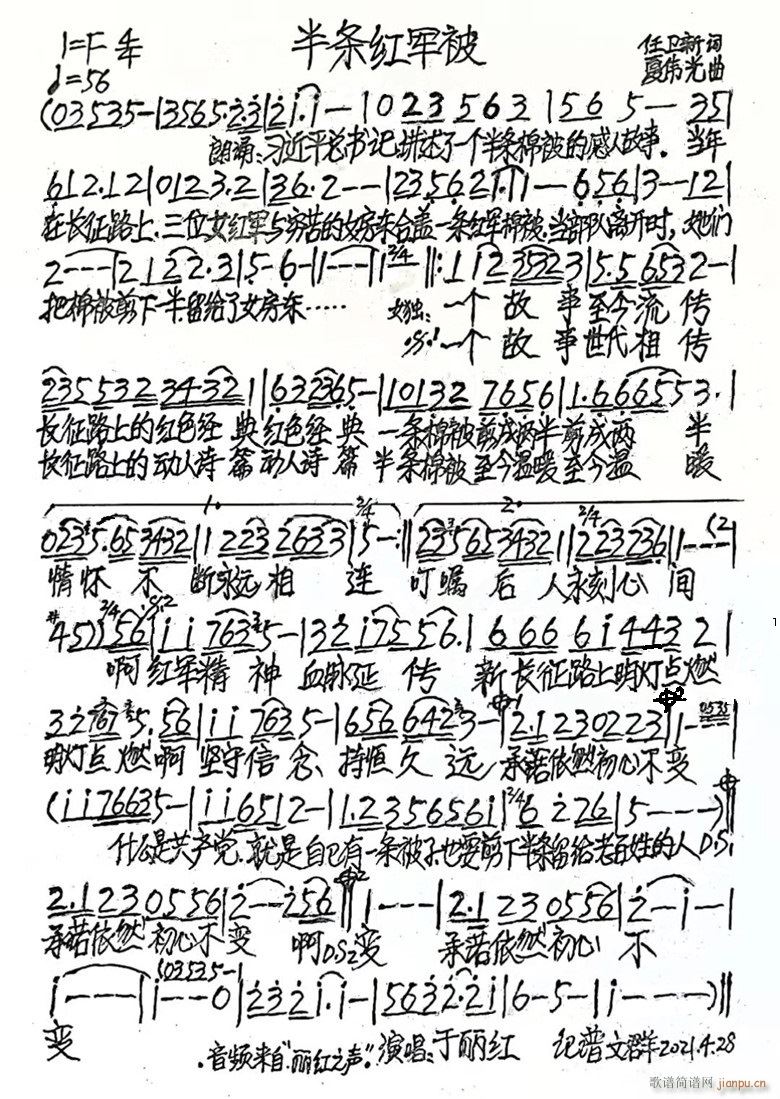 半条红军被
1=F 4/4
♩=56
任卫新 词
夏伟光 曲
(03535-|3565.2.3|2i.i--|0 23 563|56 5--35|
朗诵:习近平总书记讲述了一个半条棉被的感人故事。当年
612.12|0123.2|36.2--|23562i.i|--656|3--12|
在长征路上,三位女红军与穷苦的女房东合盖一条红军棉被,当部队离开时,她们
2---|2122.3|5-6-|1---|1 2/4 |:112 35323|5.56532-|
把棉被剪下一半留给了女房东……  女独:一个故事至今流传
一个故事世代相传
235532 34321|632365-|10132 7656|1.666553.|
长征路上的红色经典红色经典 一条棉被剪成两半剪成两半
长征路上的动人诗篇动人诗篇 半条棉被至今温暖至今温暖
1. 2/4 2. 2/4
0235.653432|1223 2633|5-:|235653432 1|2223236|1---52|
情怀不断永远相连 叮嘱后人永刻心间
#45)|2/4 56|ii7635-|32i75556.|6666i4432|
啊红军精神血脉延传 新长征路上明灯点燃
32767 5.56|ii7635-|6566423-|2.12302 23|1--0535|
明灯点燃啊坚守信念、持恒久远 承诺依然初心不变
(ii76635-|ii6512-|1.235656i|2/4 6226|5---)|
什么是共产党,就是自己有一条被子,也要剪下半条留给老百姓的人 D.S.
2.1230556|2--256|1---|2.1230556|2-i-|
承诺依然初心不变 啊D.S2变 承诺依然初心不
(03535-|
i---|i--0|232i.i-|5632.2i|6-5-|i---)|
变
音频来自"丽红之声"。演唱:于丽红 记谱文群2021.4.28
歌谱简谱网 jianpu.cn